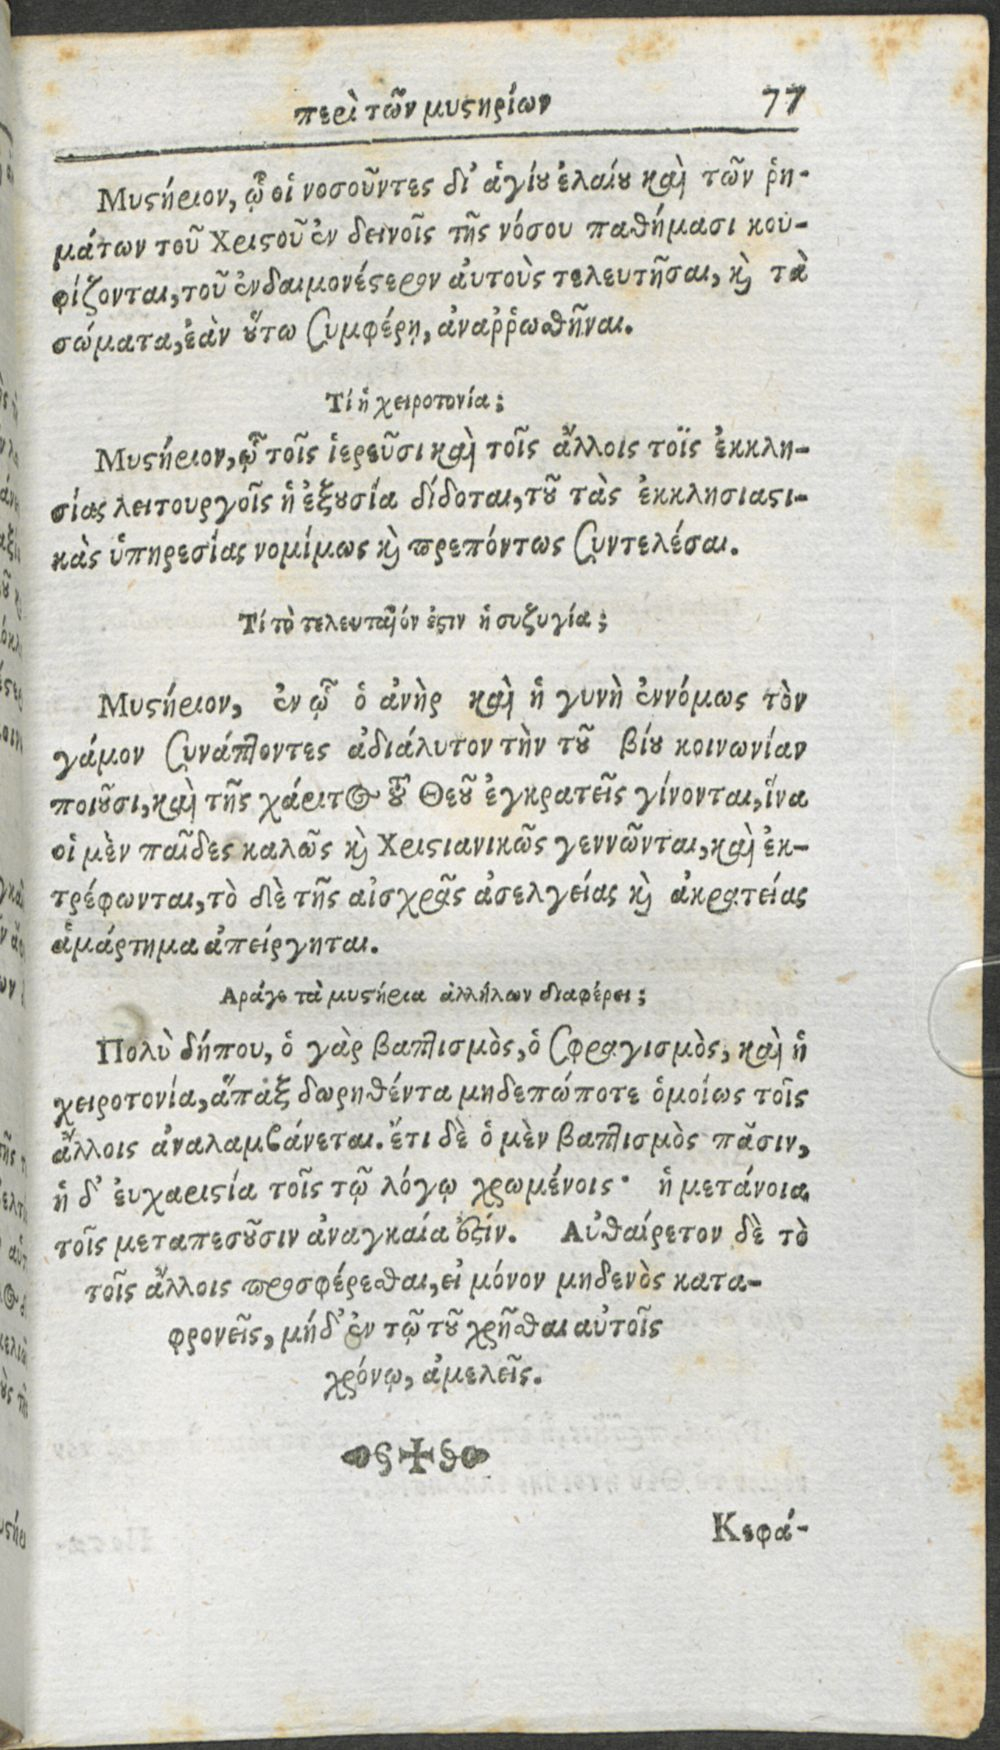 περὶ τῶν μυϛηρίων 77
Μυϛήριον, ᾧ οἱ νοσοῦντες δἰ ἁγίȣ ἐλαίȣ καὶ τῶν ῥη-
μάτων τοῦ Χριϛοῦ ἐν δεινοῖς τῆς νόσου παθήμασι κου-
φίζονται, τοῦ ἐνδαιμονέϛερον ἀυτοὺς τελευτῆσαι, κὶ τὰ
σώματα, ἐὰν ȣ̓́τω Συμφέρῃ, ἀναῤῥωθῆναι.
Τί ἡ χειροτονία;
Μυϛήριον, ᾧ τοῖς ἱερεῦσι καὶ τοῖς ἄλλοις τοῖς ἐκκλη-
σίας λειτουργοῖς ἡ ἐξȣσία δίδοται, τȣ͂ τὰς ἐκκλησιαϛι-
κὰς ὑπηρεσίας νομίμως κὶ πρεπόντως Συντελέσαι.
Τί τὸ τελευταῖόν ἐϛιν ἡ συζυγία;
Μυϛήριον, ἐν ᾧ ὁ ἀνὴρ καὶ ἡ γυνὴ ἐννόμως τὸν
γάμον Συνάπτοντες ἀδιάλυτον τὴν τȣ͂ βίȣ κοινωνίαν
ποιȣ͂σι, καὶ τῆς χάριτος τȣ͂ Θεȣ͂ ἐγκρατεῖς γίνονται, ἵνα
οἱ μὲν παῖδες καλῶς κὶ Χριϛιανικῶς γεννῶνται, καὶ ἐκ-
τρέφωνται, τὸ δὲ τῆς αἰσχρᾶς ἀσελγείας κὶ ἀκρατείας
ἁμάρτημα ἀπείργηται.
Αράγε τὰ μυϛήρια ἀλλήλων διαφέρει;
Πολὺ δήπου, ὁ γὰρ βαπτισμὸς, ὁ Σφραγισμὸς, καὶ ἡ
χειροτονία, ἅπαξ δωρηθέντα μηδεπώποτε ὁμοίως τοῖς
ἄλλοις ἀναλαμβάνεται. ἔτι δὲ ὁ μὲν βαπτισμὸς πᾶσιν,
ἡ δ' ἐυχαριϛία τοῖς τῷ λόγῳ χρωμένοις· ἡ μετάνοια
τοῖς μεταπεσȣ͂σιν ἀναγκαία ἐϛίν. Αὐθαίρετον δὲ τὸ
τοῖς ἄλλοις προσφέρεσθαι, εἰ μόνον μηδενὸς κατα-
φρονεῖς, μήδ' ἐν τῷ τȣ͂ χρῆσθαι αὐτοῖς
χρόνῳ, ἀμελεῖς.
Κεφά-